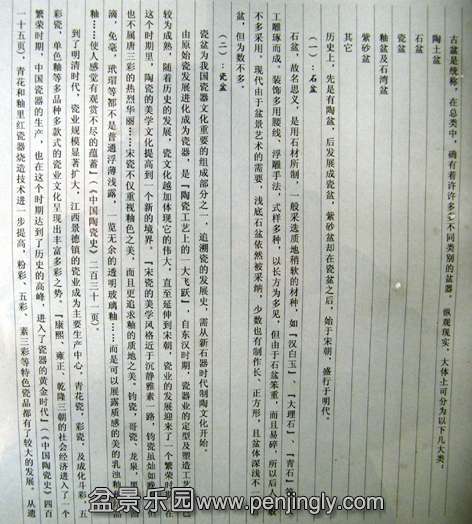 古盆是统称，在总类中，确有着许许多多不同类别的盆器，纵观现实，大体上可分为以下几大类：
陶土盆
瓷盆
石盆
釉盆及石湾盆
紫砂盆
其它
历史上，先是有陶盆，后发展成瓷盆，紫砂盆却在瓷盆之后，始于宋朝，盛行于明代。
（一）：石盆
石盆，故名思义，是用石材所制，一般采选质地稍软的材种，如『汉白玉』、『大理石』、『青石』
工雕琢而成，装饰多用腰线，浮雕手法，式样多种，以长方为多见，但由于石盆笨重，而且易碎，所以后
不多采用。现代由于盆景艺术的需要，浅底石盆依然被采纳，少数也有制作长、正方形，且盆体深浅不
盆，但为数不多。
（二）：瓷盆
瓷盆为我国瓷器文化重要的组成部分之一，追溯瓷的发展史，需从新石器时代制陶文化开始。
由原始瓷发展进化成为瓷器，是『陶瓷工艺上的一大飞跃』，自东汉时期，瓷器业的定型及塑造工艺
较为成熟，随着历史的发展，瓷文化越加体现它的伟大，直至延伸到宋朝，瓷业的发展迎来了一个繁荣时
这个时期里，陶瓷的美学文化提高到一个新的境界。『宋瓷的美学风格近于沉静雅素一路，钧瓷虽灿如晚
也不属唐三彩的热烈华丽……宋瓷不仅重视釉色之美，而且更追求釉的质地之美，钧瓷，哥瓷、龙泉、黑
滴，兔毫，玳瑁等都不是普通浮薄浅露，一览无余的透明玻璃釉……而是可以展露质感的美的乳浊釉
釉……使人感觉有观赏不尽的蕴蓄』（《中国陶瓷史》二百三十一页）。
到了明清时代，瓷业规模显著扩大，江西景德镇的瓷业成为主要生产中心，青花瓷，彩瓷，及成化斗彩，五
彩瓷，单色釉等多品种多款式的瓷业文化呈现出丰富多彩之势。『康熙、雍正、乾隆三朝的社会经济进入了一个
繁荣时期，中国瓷器的生产，也在这个时期达到了历史的高峰，进入了瓷器的黄金时代』（《中国陶瓷史》四百
一十五页），青花和釉里红瓷器烧造技术进一步提高，粉彩、五彩、素三彩等特色瓷品都有了较大的发展。从遗
盆景乐园www.penjingly.com